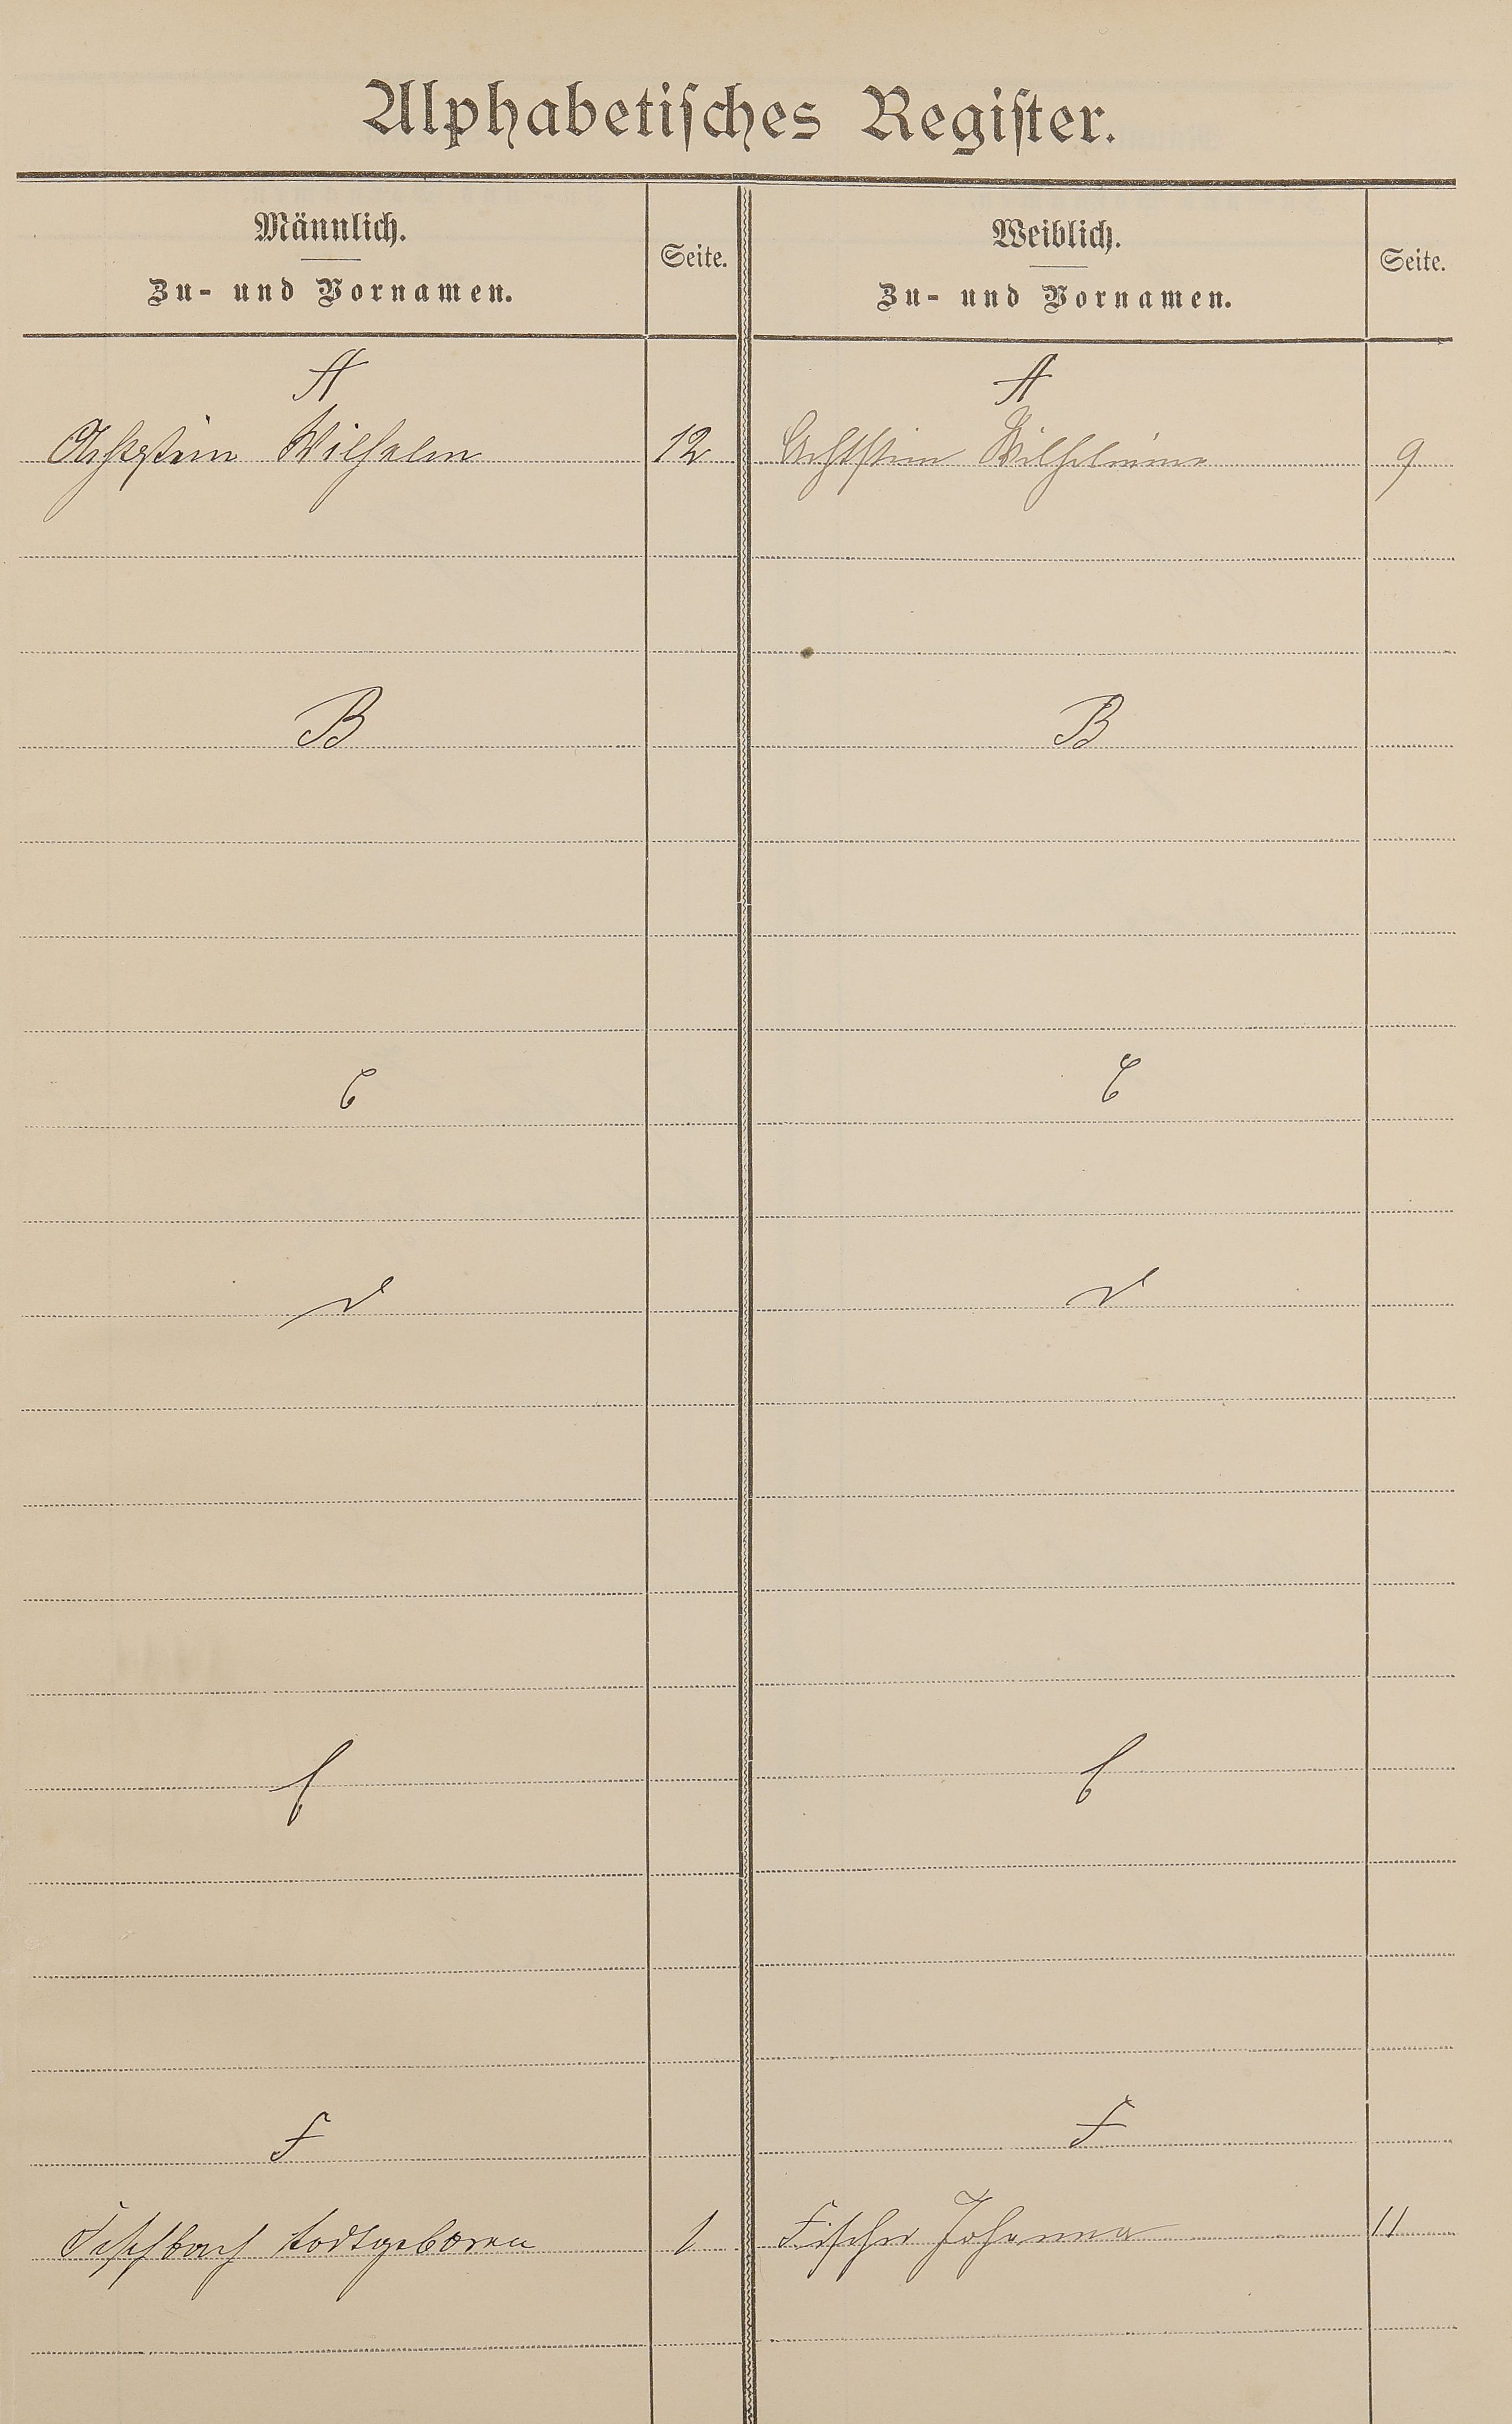 Alphabetisches Register.
Männlich.
Zu- und Vornamen.
Seite.
Weiblich.
Zu- und Vornamen.
Seite.
A
A
Achtstein Wilhelm 12
Achtstein Wilhelmine 9
B
B
C
C
D
D
E
E
F
F
Fischbach todtgeboren 1
Fischer Johanna 11